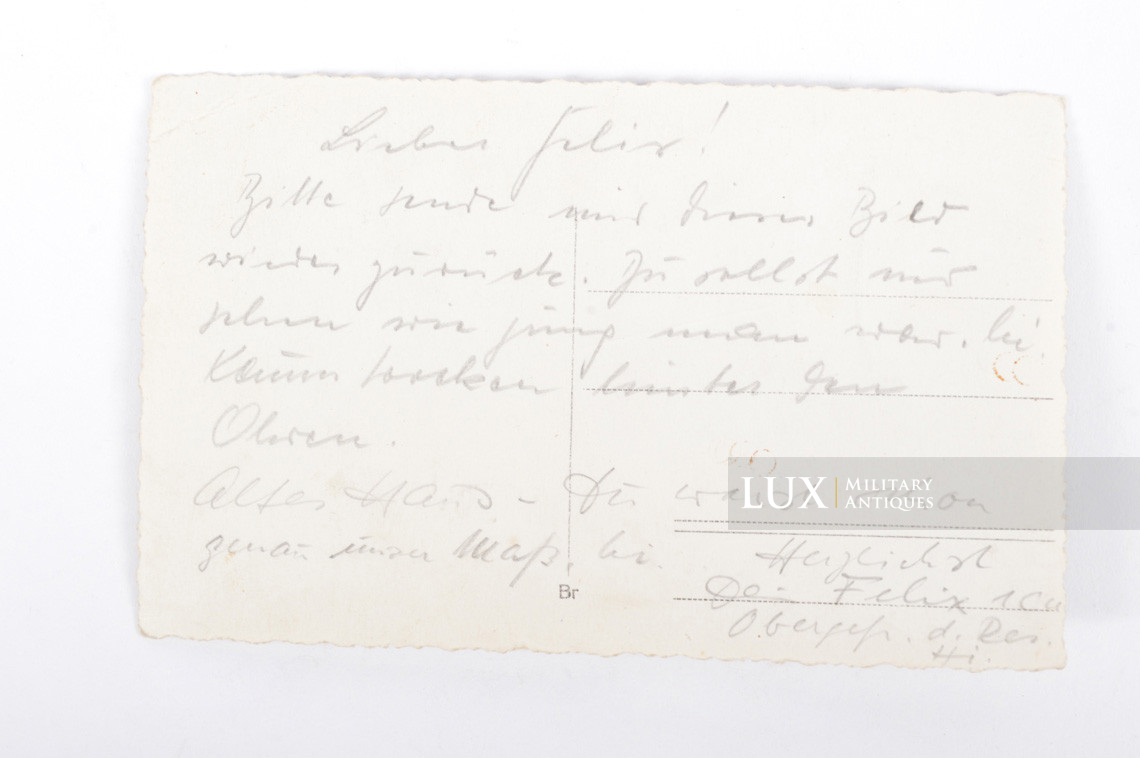 Lieber Felix!
Bitte sende mir dieses Bild
wieder zurück. Du sollst mir
sehen wie jung man war. hi!
Kaum trocken hinter den
Ohren.
Altes Haus - Du warst schon
genau unser Maß. hi.
Herzlichst
Dein Felix
Obergefr. d. Res.
Hi.
Br
LUX MILITARY ANTIQUES